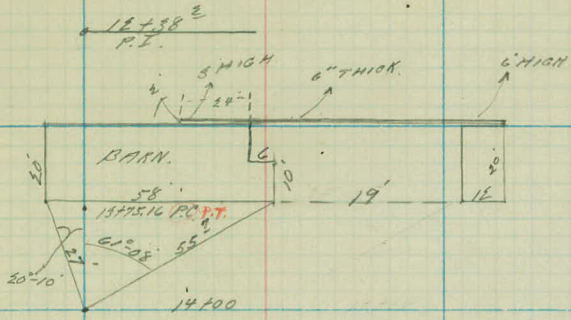 12+38²
P.I.
3' HIGH
6" THICK.
6' HIGH
24'
BARN.
6
20'
10'
20'
58'
19'
12
13+75.16 P.C. P.T.
61°-08'
55²
27
20°-10'
14+00